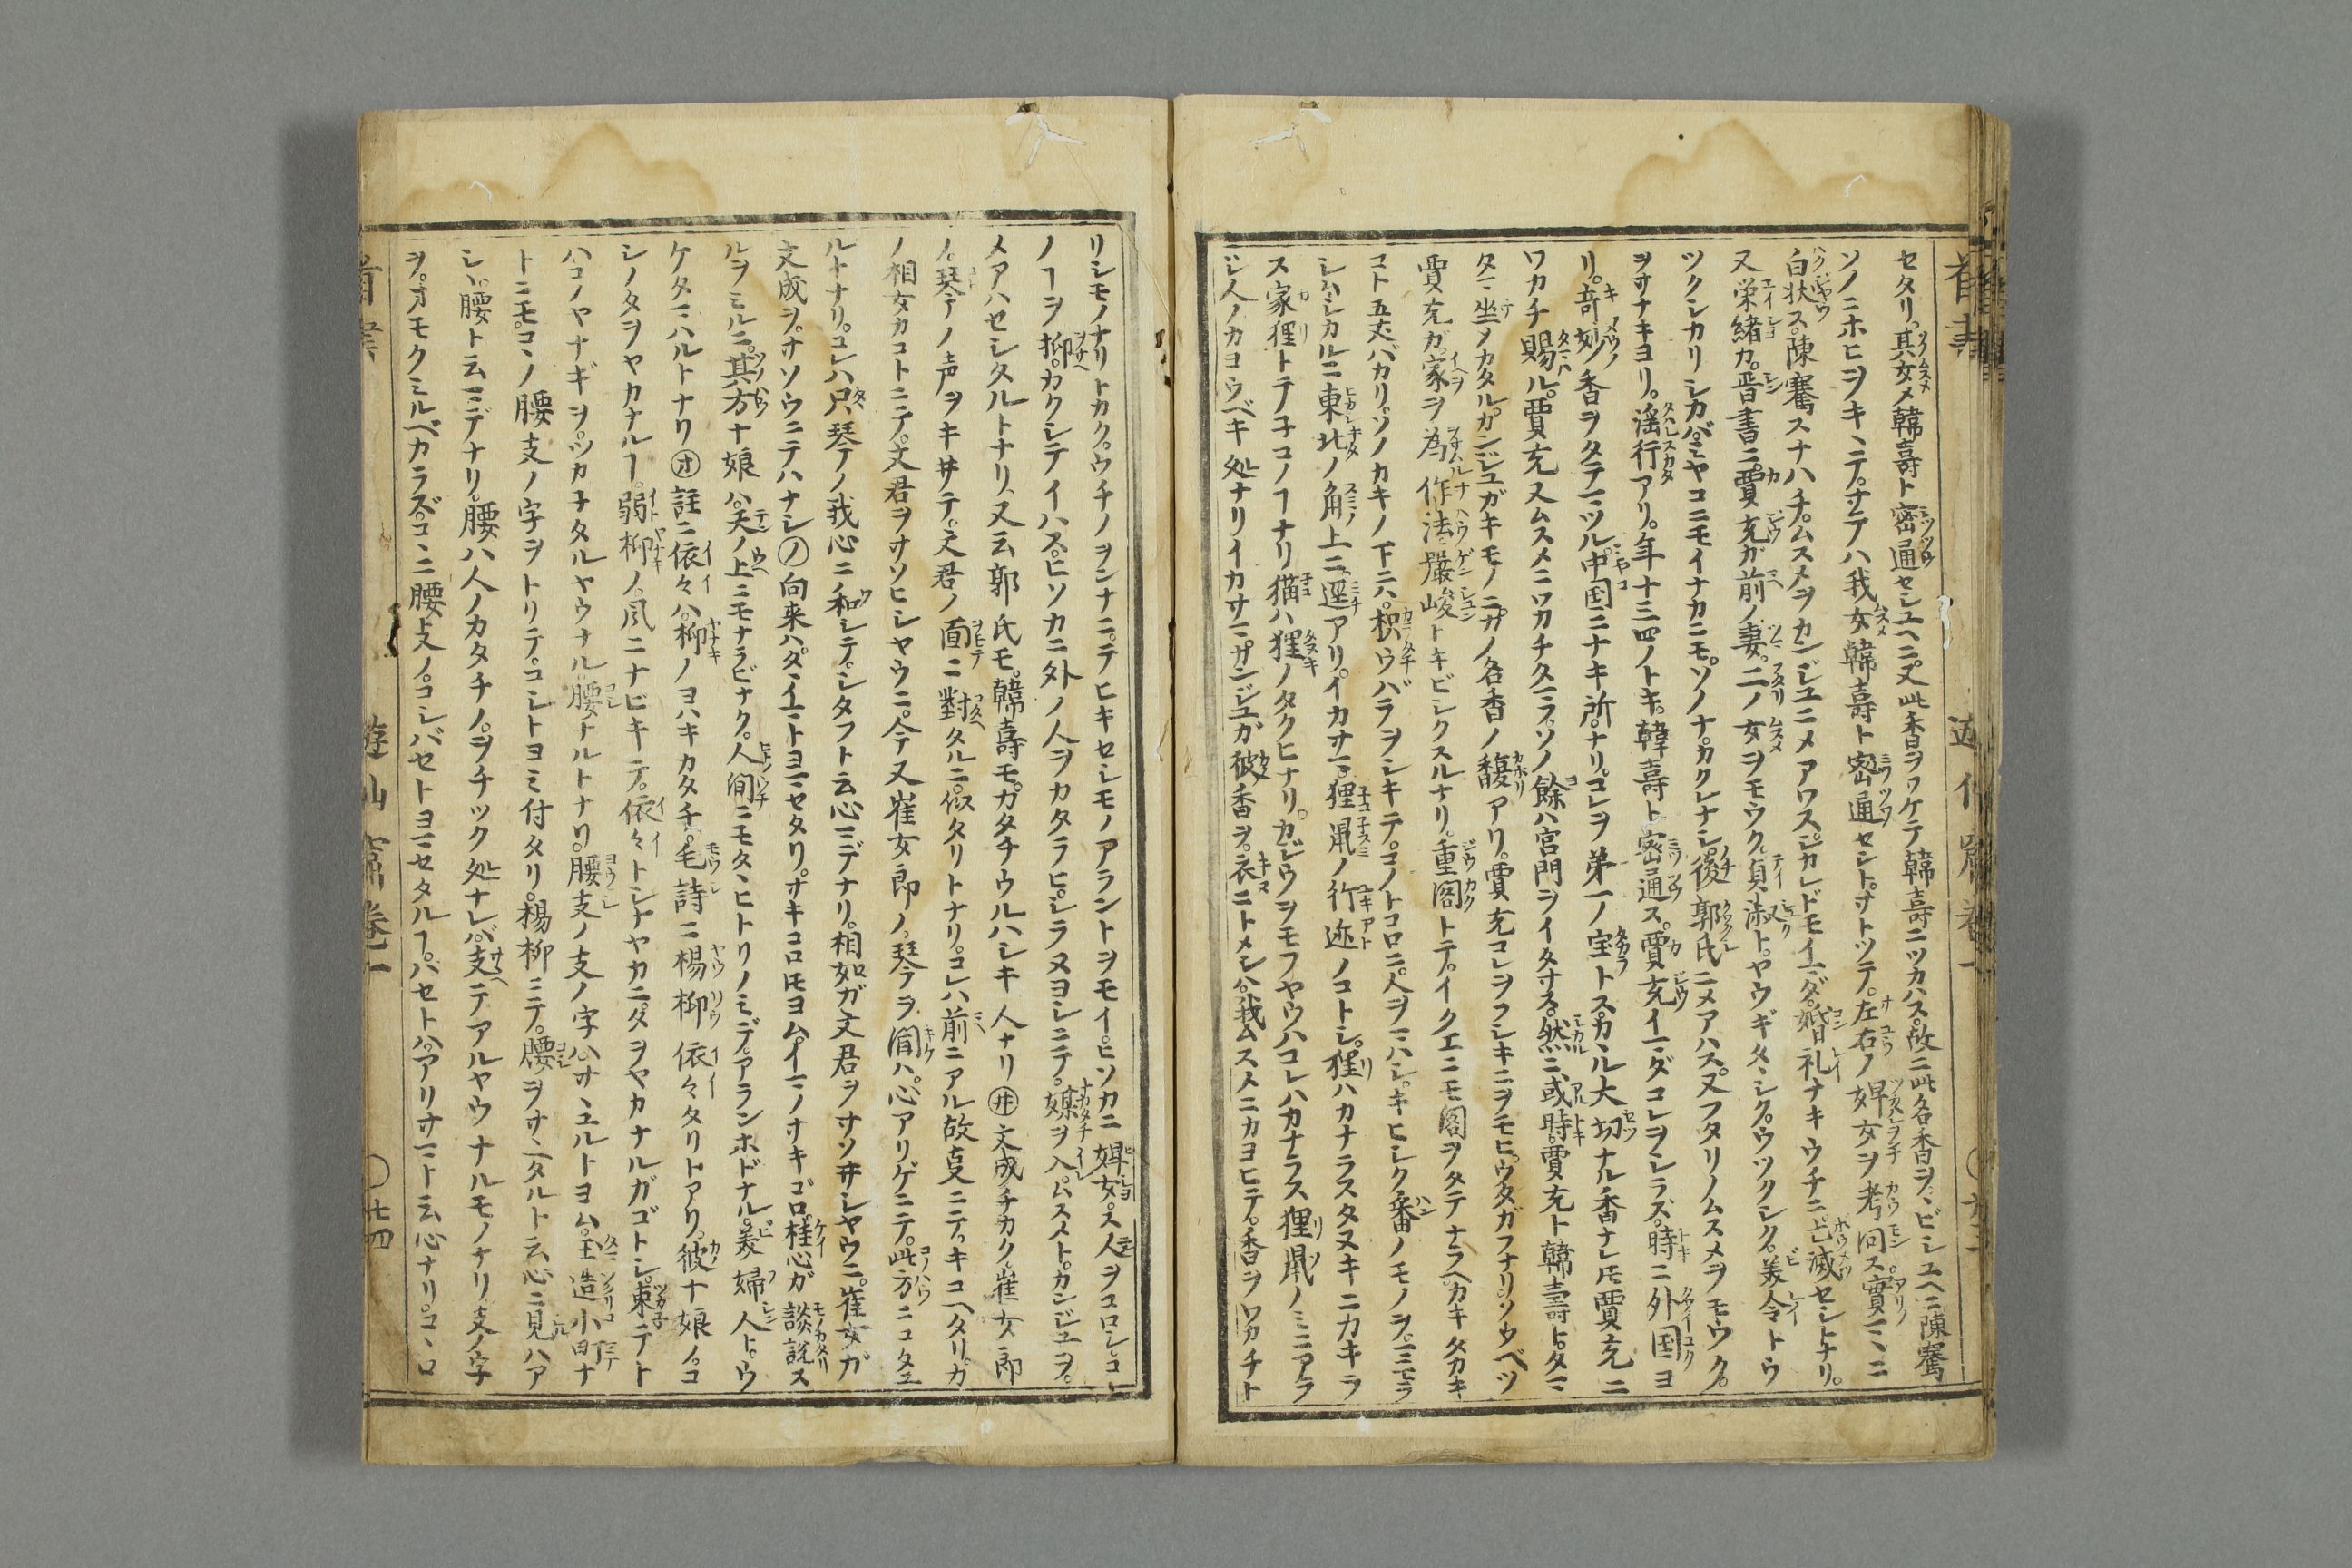 セタリ。其女メ韓壽ト密通セシユヘニ。又此香ヲワケテ韓壽ニツカハス。故ニ此名香ヲ、ビシユヘニ陳騫
ソノニホヒヲキヽテ。サテハ我女韓壽ト密通セシト。サトツテ。左右ノ婢女ヲ考問ス。實ニ
白状ス。陳騫スナハチ。ムスメヲカンジユニメアワス。シカレドモイマダ。婚礼ナキウチニ亡滅セシトナリ。
又栄緒カ。晋書ニ賈充ガ前ノ妻。二ノ女ヲモウク。貞淑ト。ヤウギタヽシク。ウツクシク。美令トウ
ツクシカリシカバ。ミヤコニモイナカニモ。ソノナ。カクレナシ。後郭氏ニメアハス。又フタリノムスメヲモウク。
ヲサナキヨリ。滛行アリ。年十三四ノトキ。韓壽ト密通ス。賈充イマダコレヲシラズ。時ニ外国ヨ
リ。奇妙ノ香ヲタテマツル。中国ニナキ所ナリ。コレヲ第一ノ宝トス。カヽル大切ナル香ナレ𪜈賈充ニ
ワカチ賜ル。賈充又ムスメニワカチタマフ。ソノ餘ハ宮門ヲイタサス。然ニ或時。賈充ト韓壽ト。タマ
タマ坐ノカタル。カンジユガキモノニ。カノ名香ノ馥アリ。賈充コレヲフシキニヲモヒ。ウタガフナリ。ソウベツ
賈充ガ家ヲ為作法嚴峻トキビシクスルナリ。重閣トテ。イクエニモ閣ヲタテナラヘ。カキタカキ
コト五丈バカリ。ソノカキノ下ニハ。枳ウバラヲシキテ。コノトコロニ。人ヲマハシ。キヒシク番ノモノヲ。マモラ
シム。シカルニ東北ノ角ノ上ニ。逕アリ。イカサマ。狸鼡ノ行迹ノコトシ。狸ハカナラスタヌキニカキラ
ス家狸トテ子コノヿナリ猫ハ狸ノタクヒナリ。カジウヲモフヤウハコレハカナラス狸鼡ノミニアラ
シ人ノカヨウベキ処ナリイカサマ。カンジユガ彼香ヲ。衣ニトメシハ。我ムスメニカヨヒテ。香ヲワカチト
リシモノナリトカク。ウチノヲンナニ。テヒキセシモノアラントヲモイ。ヒソカニ婢女。ス人ヲコロシ。コ
ノヿヲ抑。カクシテイハス。ヒソカニ外ノ人ヲカタラヒ。シラヌヨシニテ。媒ヲ入。ムスメト。カンジユヲ。
メアハセシタルトナリ、又云郭氏モ。韓壽モ。カタチウルハシキ人ナリ㊉文成チカク。崔女郎
ノ。琴ノ声ヲキ井テ。文君ノ面ニ對タルニ。似タリトナリ。コレハ前ニアル故支ニテ。キコヘタリ。カ
ノ相女カコトニテ。文君ヲサソヒシヤウニ。今又崔女郎ノ琴ヲ聞ハ。心アリゲニテ。此方ニコタエ
ルトナリ。コレハ只琴ノ我心ニ和シテ。シタフト云心マデナリ。相如ガ文君ヲサソ井シヤウニ。崔女ガ
文成ヲ。サソウニテハナシ㋨向来ハ。タヽイマトヨマセタリ。サキコロ𪜈ヨム。イマノサキゴロ。桂心ガ談説ス
ルヲミルニ。其方ナ娘ハ。天ノ上ニモナラビナク。人間ニモタヽヒトリノミデ。アランホドナル。美婦人ト。ウ
ケタマハルトナリ㋔註ニ依々ハ。柳ノヨハキカタチ。毛詩ニ楊柳依々タリトアリ。彼ナ娘ノ。コ
シノタヲヤカナルヿ。弱柳ノ。風ニナビキテ。依々トシナヤカニ。タヲヤカナルガゴトシ。束ニテト
ハコノヤナギヲ。ツカ子タルヤウナル。腰ナルトナリ。腰支ノ支ノ字ハ。サヽユルトヨム。玉造小町ナ
トニモ。コヽノ腰支ノ字ヲトリテ。コシトヨミ付タリ。楊柳ミテ。腰ヲサヽヘタルト云心ニ見ハア
シヽ。腰ト云マデナリ。腰ハ人ノカタチノ。ヲチツク処ナレバ。支テアルヤウナルモノナリ。支ノ字
ヲ。オモクミルベカラズ。コヽニ腰支ノ。コシバセトヨマセタルヿ。バセトハ。アリサマト云心ナリ。コヽロ
遊仙窟巻一
七四